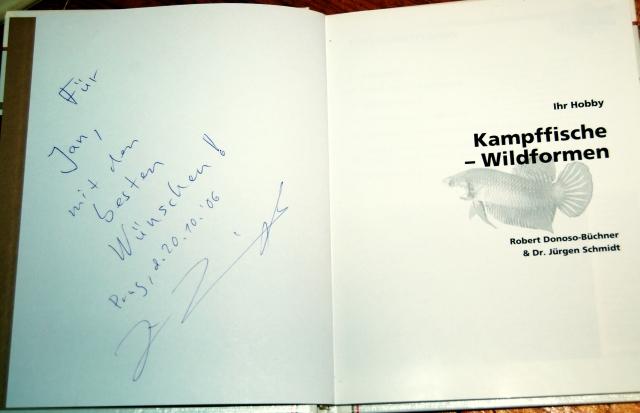 Für
Jan,
mit den
besten
Wünschen!
Prag, d. 20.10.'06
Ihr Hobby
Kampffische
– Wildformen
Robert Donoso-Büchner
& Dr. Jürgen Schmidt